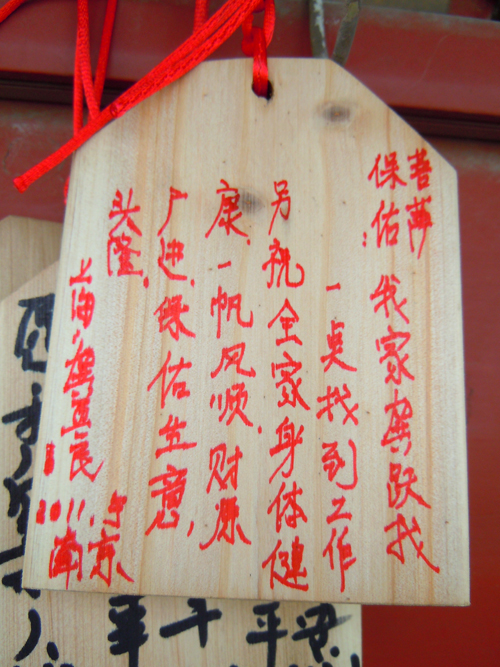 菩萨
保佑: 我家窦跃找
一点找到工作
另祝全家身体健
康,一帆风顺,财源
广进,保佑生意,
兴隆,
上海
2011. 于
南京
平